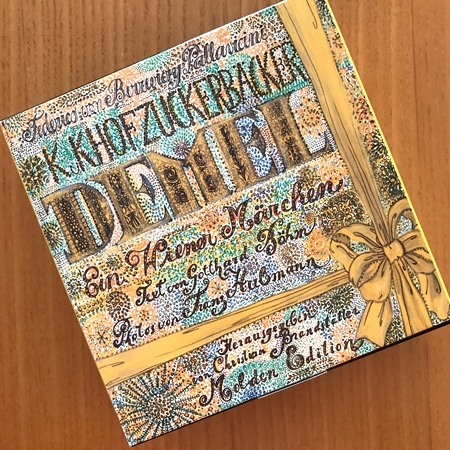 Federico von Berzeviczy-Pallavicini
K.K.HOFZUCKERBÄCKER
DEMEL
Ein Wiener Märchen
Text von Gotthard Böhm
Photos von Franz Hubmann
Herausgegeben
von Christian Brandstätter
Molden Edition